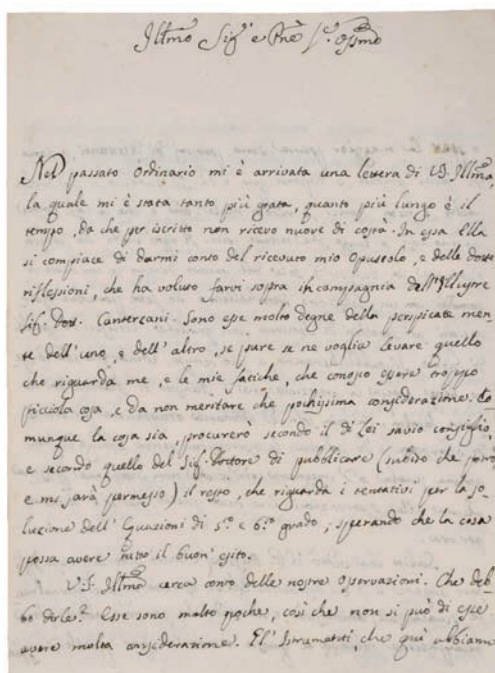 Illmo Sigr e Pne Cmo Ossmo
Nel passato Ordinario mi è arrivata una lettera di VS. Illma,
la quale mi è stata tanto più grata, quanto più lungo è il
tempo, da che per iscritto non ricevo nuove di costà. In essa Ella
si compiace di darmi conto del ricevuto mio Opuscolo, e delle dotte
riflessioni, che ha voluto farvi sopra in compagnia dell'Illustre
Sig. Dott. Canterzani. Sono esse molto degne della perspicace men-
te dell'uno, e dell'altro, se pure se ne voglia levare quello
che riguarda me, e le mie fatiche, che conosco essere troppo
picciola cosa, e da non meritare che pochissima considerazione. Co
munque la cosa sia, procurerò secondo il di lei savio consiglio,
e secondo quello del Sig. Dottore di pubblicare (subito che potrò
e mi sarà permesso) il resto, che riguarda i tentativi per la so-
luzione dell'Equazioni di 5.o e 6.o grado, sperando che la cosa
possa avere tutto il buon'esito.
V.S. Illma cerca conto delle nostre Osservazioni. Che deb-
bo dirle? Esse sono molto poche, così che non si può di esse
avere molta considerazione. Gl'Istrumenti, che quì abbiamo